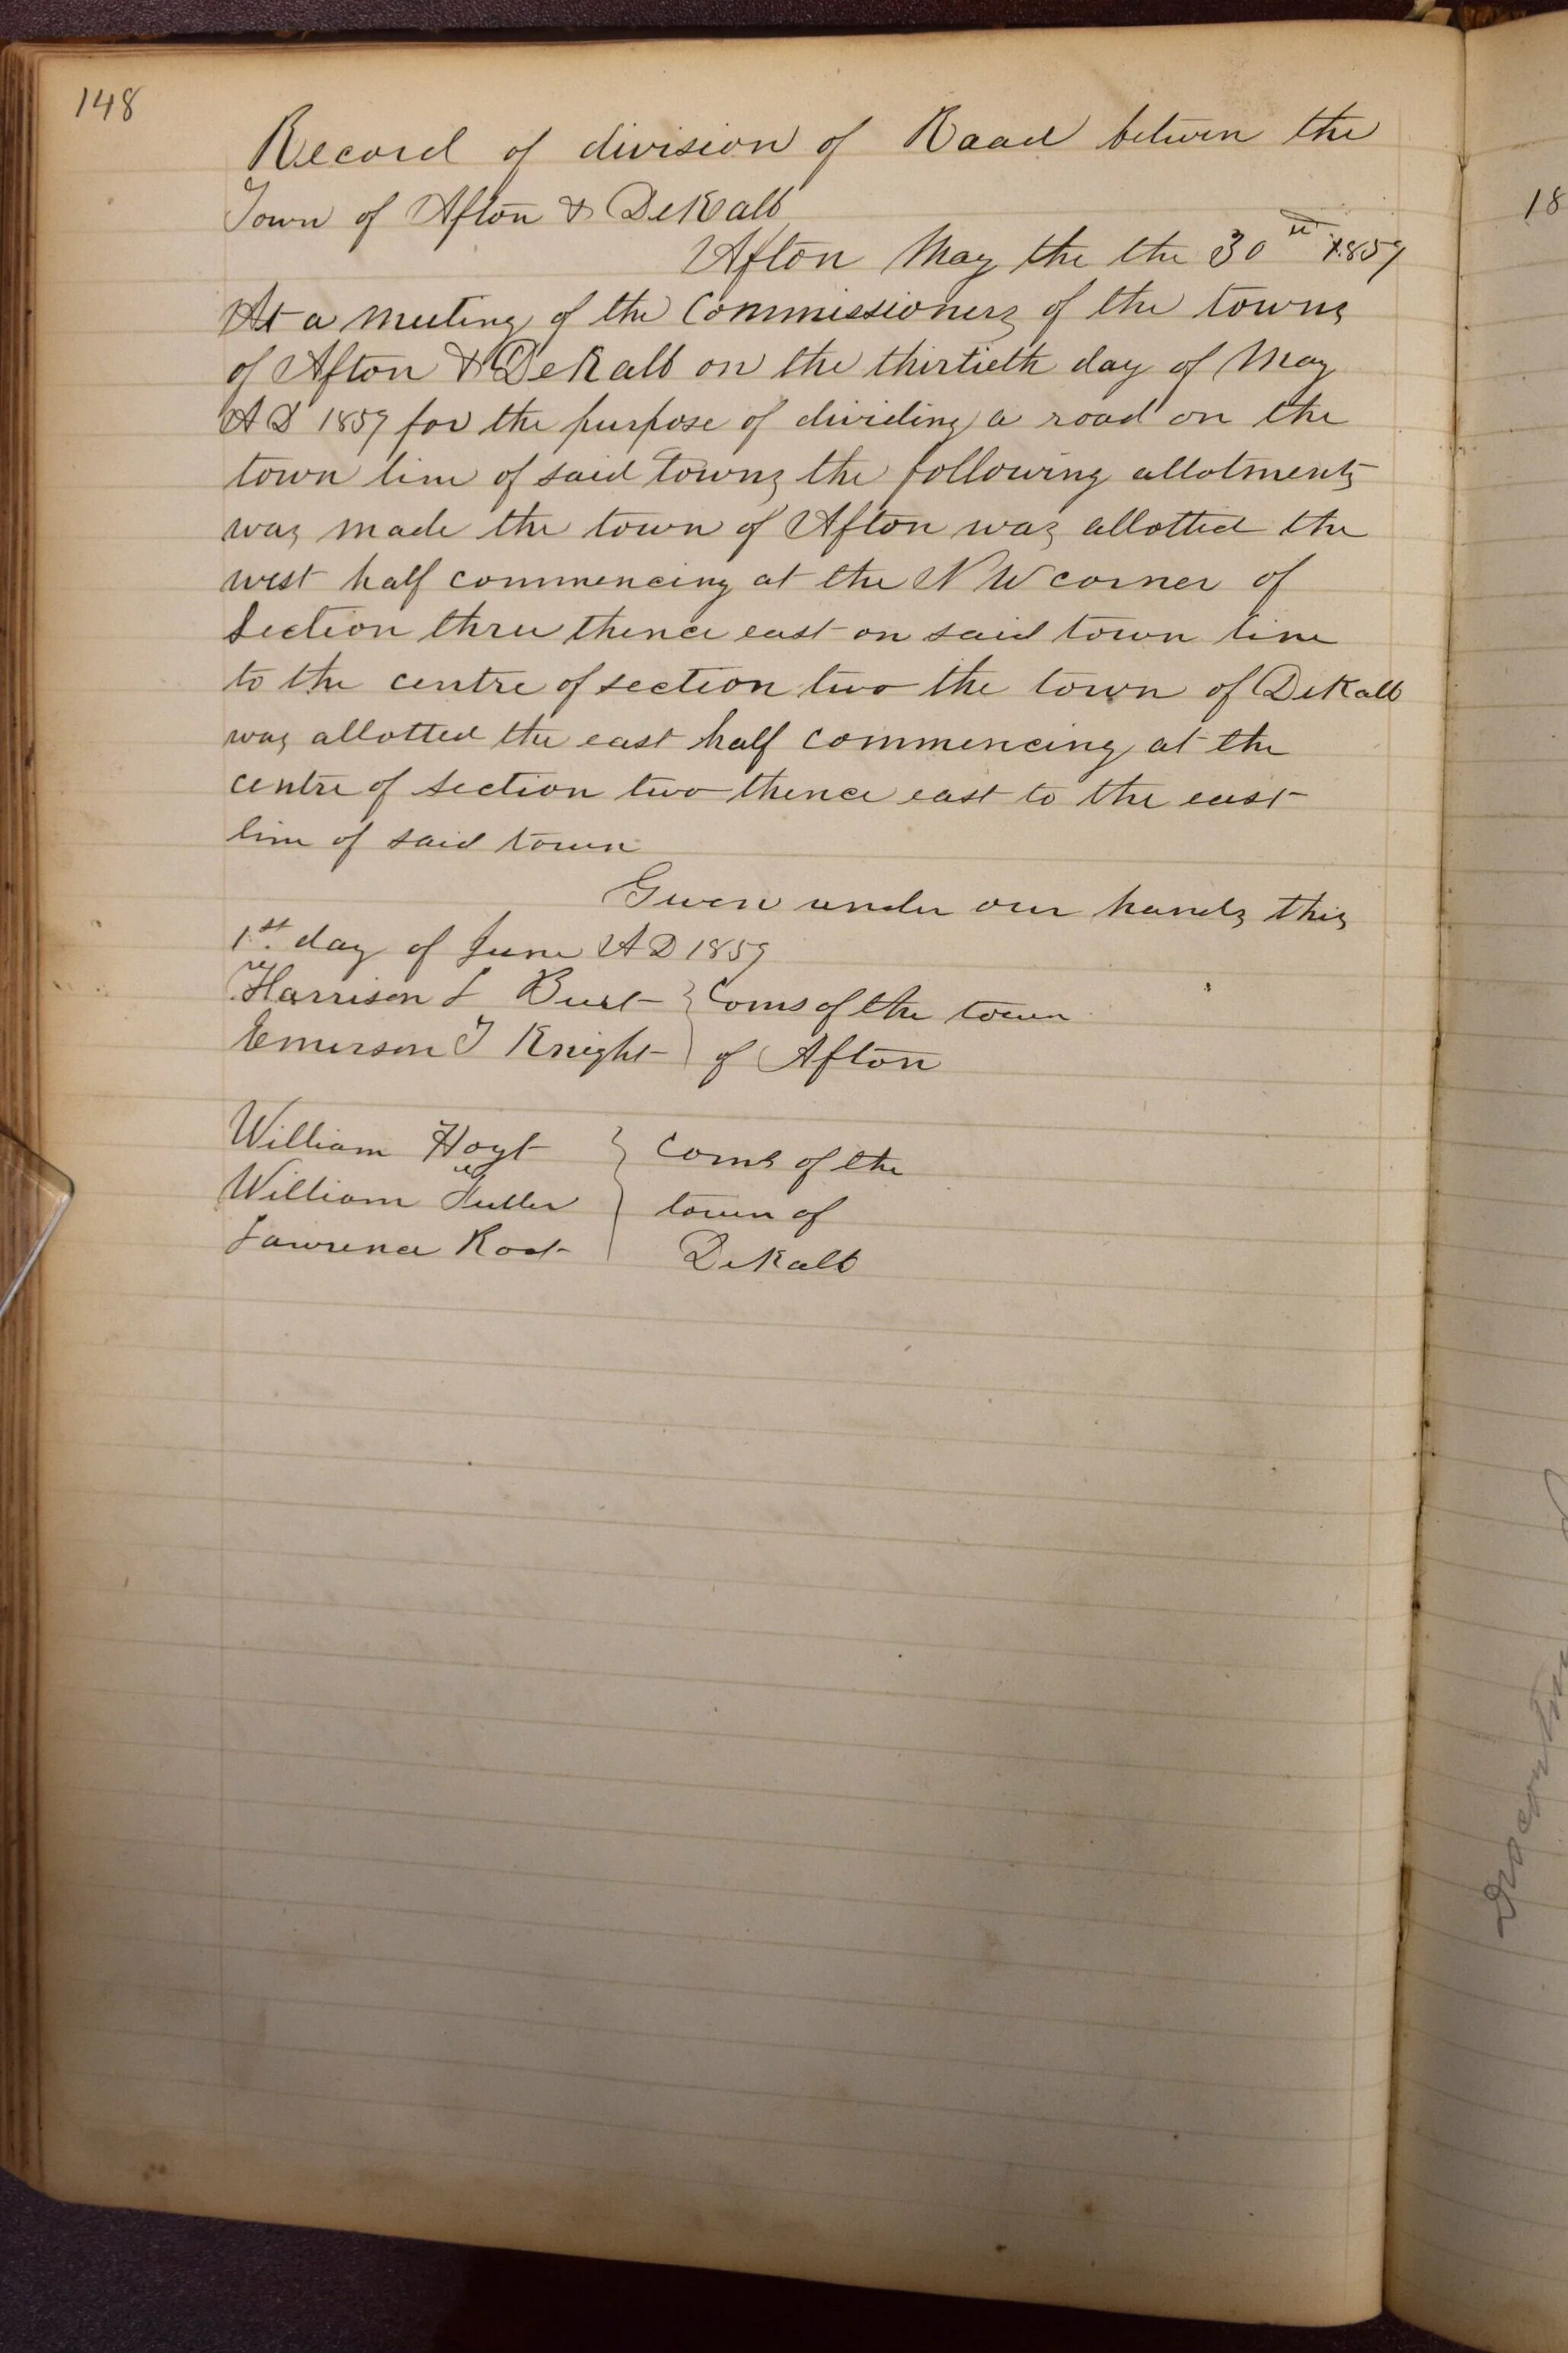 148
Record of division of Road betwen the
Town of Afton & DeKalb
Afton May the the 30th 1859
At a meeting of the Commissioners of the towns
of Afton & DeKalb on the thirtieth day of May
A D 1859 for the purpose of dividing a road on the
town line of said towns the following allotments
was made the town of Afton was allotted the
west half commencing at the N W corner of
Section three thence east on said town line
to the centre of section two the town of DeKalb
was allotted the east half commencing at the
centre of section two thence east to the east
line of said town
Given under our hands this
1st day of June A D 1859
Harrison L Burt } Coms of the town
Emerson T Knight } of Afton
William Hoyt } Coms of the
William Fuller } town of
Lawrence Root } DeKalb
18